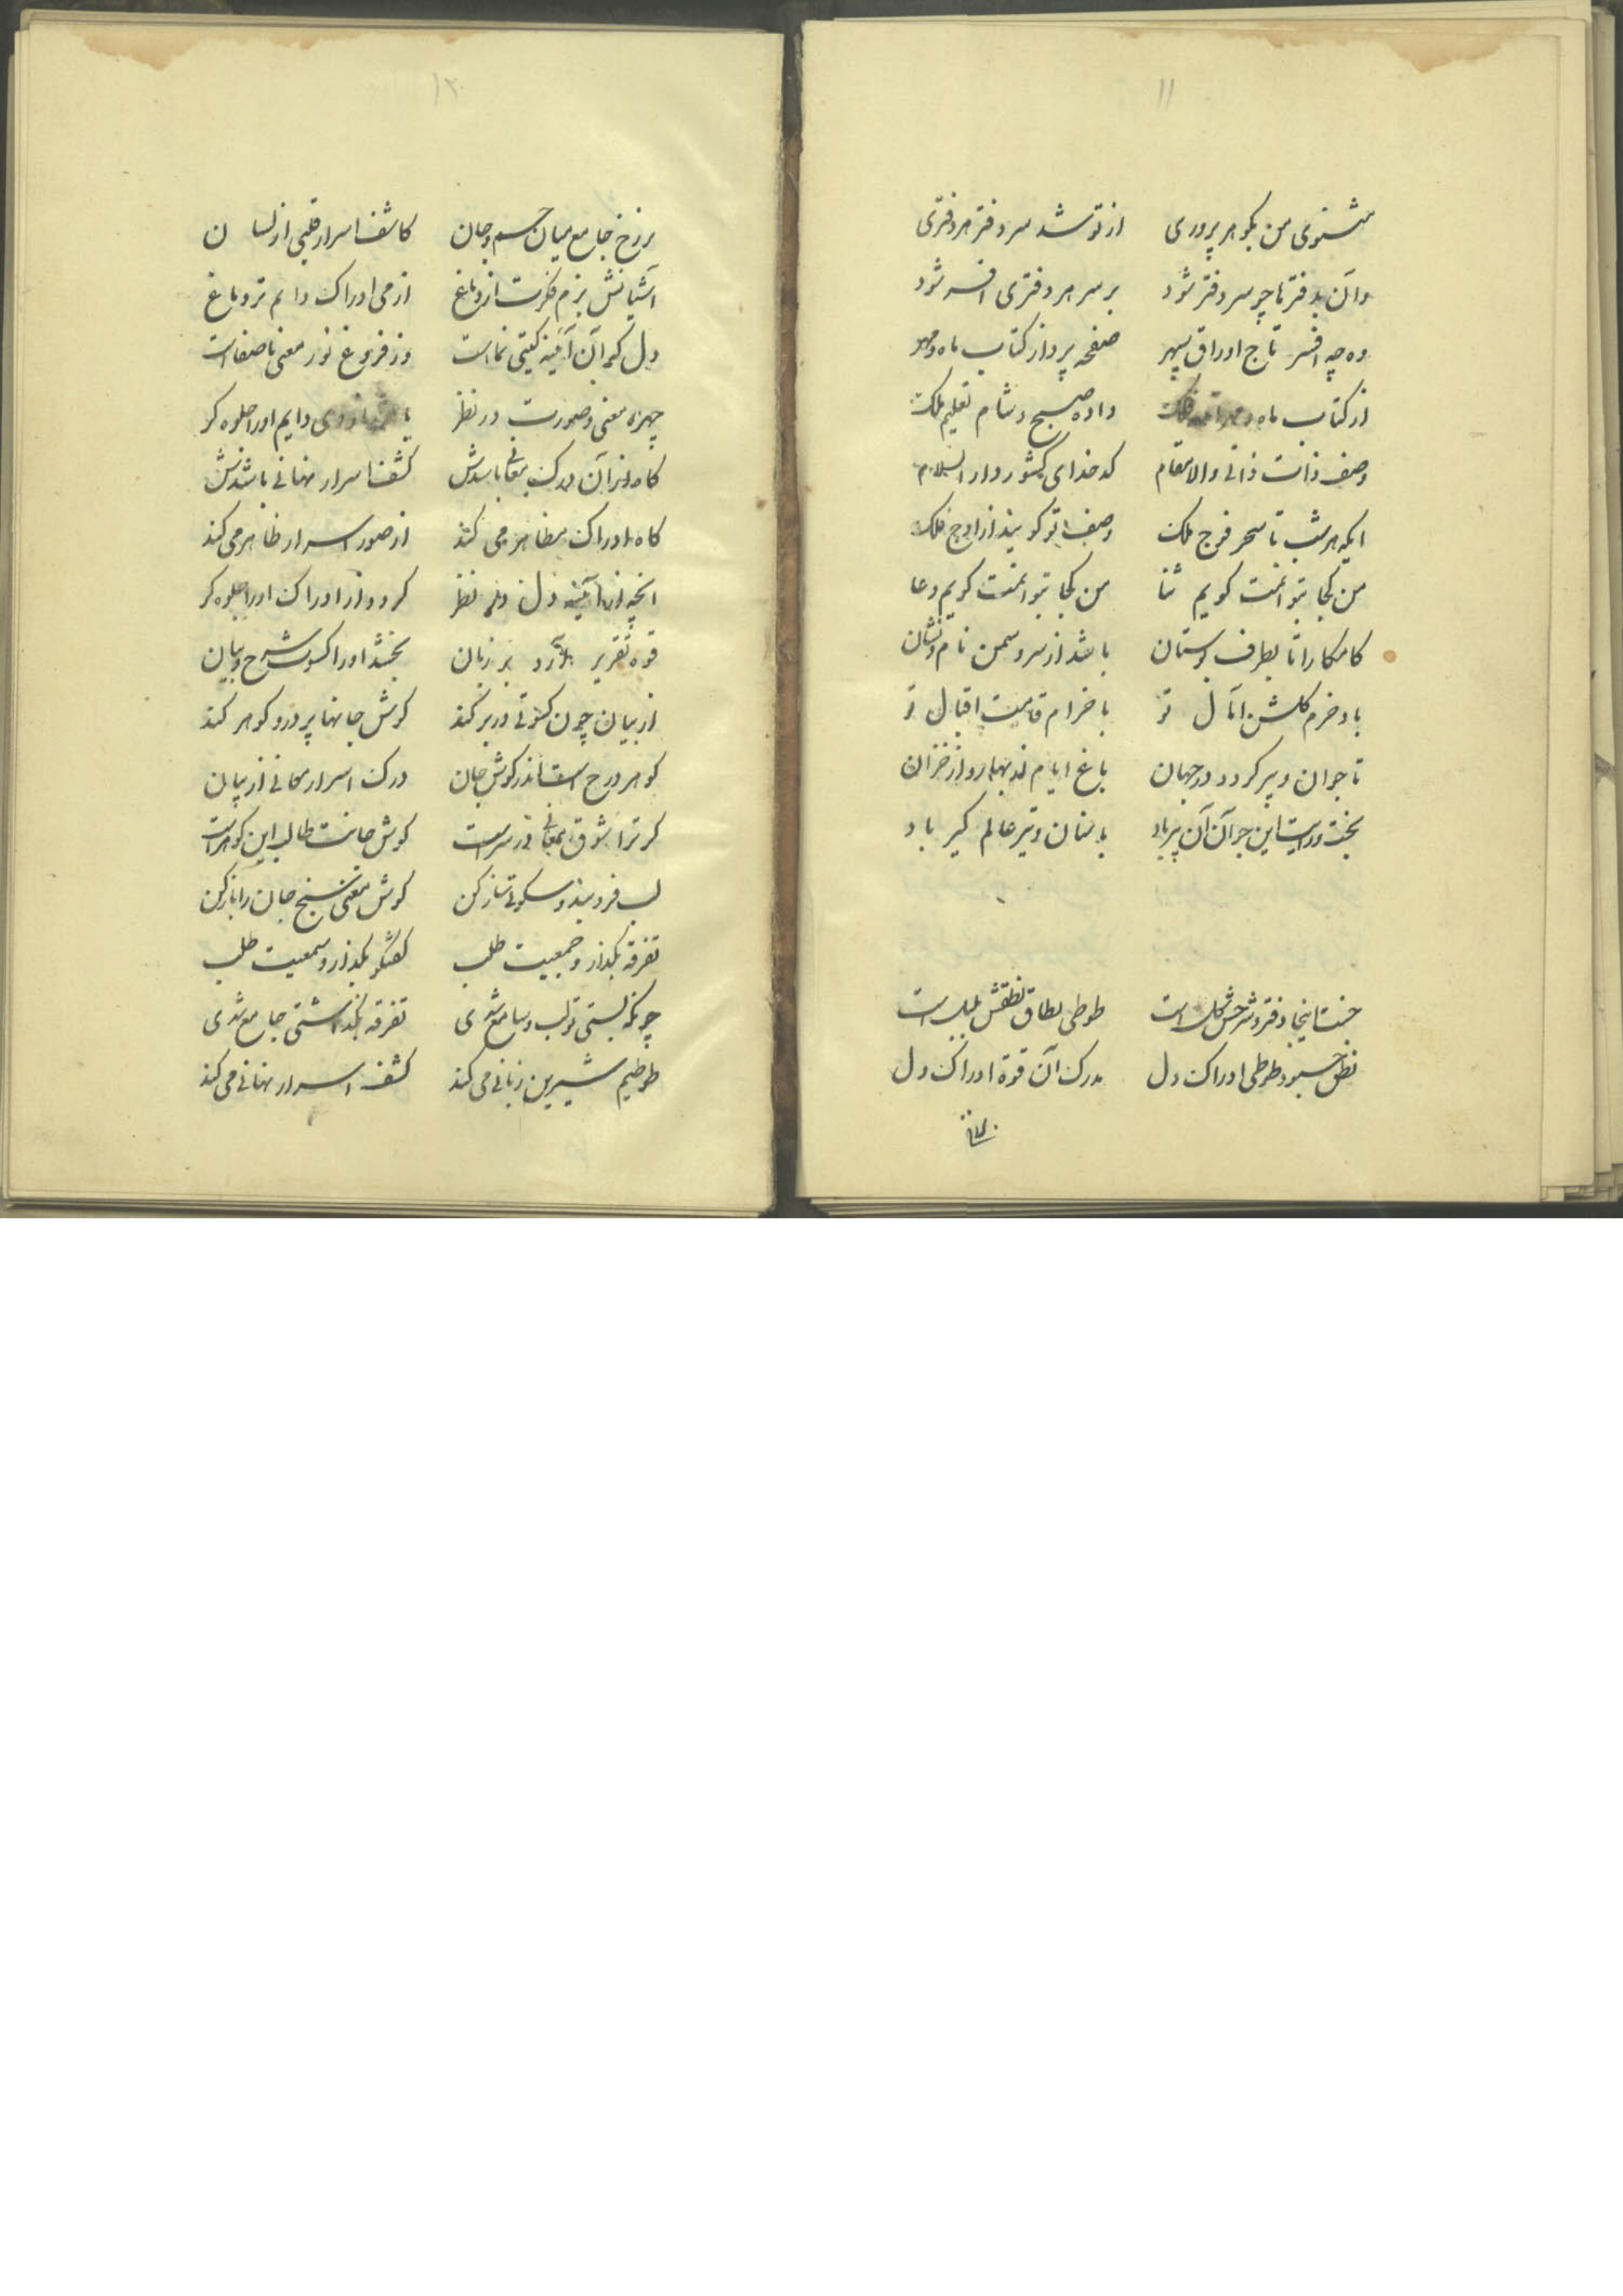 ۱۱
مثنوی من بگوهر پروری از تو شد سر دفتر هر دفتری
وآن بدفترها چو سر دفتر شود بر سر هر دفتری افسر شود
وه چه افسر تاج اوراق سپهر صفحه پرداز کتاب ماه و مهر
از کتاب ماه و فلک داده صبح و شام تعلیم ملک
وصف ذات ذاتی والا مقام کدخدای کشور دار السلام
ایکه هر شب تا سحر فوج ملک وصف تو کویند از اوج فلک
من کجا بتوانمت کویم ثنا من کجا بتوانمت کویم دعا
کامکارا تا بطرف بوستان باشد از سرو سمن نام و نشان
باد خرم کلشن آمال تو با خرام قامت اقبال تو
تا جوان و پیر کردد در جهان باغ ایام از بهار و از خزان
بخت و رایت این جوان آن پیر باد با سنان و تیر عالم کیر باد
جنت اینجا دفتر و شرحش کل است طوطی نطاق نطقش بلبل است
نطق چبود طوطی ادراک دل مدرک آن قوة ادراک دل
برزخ
۱۲
برزخ جامع میان جسم و جان کاشف اسرار قلبی از لسان
آشیانش بزم فکرت از دماغ از می ادراک دایم تر دماغ
دل که آن آئینه کیتی نماست وز فروغ نور معنی با صفاست
چهره معنی و صورت در نظر دایم او را جلوه کر
کاه از آن درک معانی باشدش کشف اسرار نهانی باشدش
کاه ادراک مظاهر می کند از صور اسرار ظاهر می کند
آنچه از آئینه دل در نظر کردد از ادراک او را جلوه کر
قوه تقریر آرد بر زبان بخشد او را کسوت شرح و بیان
از بیان چون کسوتی در بر کند کوش جانها پر در و کوهر کند
کوهر درج است اندر کوش جان درک اسرار معانی از بیان
کر ترا شوق معانی در سر است کوش جانت طالب این کوهر است
لب فرو بند و سکوتی ساز کن کوش معنی سنج جان را باز کن
تفرقه بکذار و جمعیت طلب کفتگو بکذار و سمعیت طلب
چونکه بستی تو لب و سامع شدی تفرقه بکذاشتی جامع شدی
طوطیم شیرین زبانی می کند کشف اسرار نهانی می کند